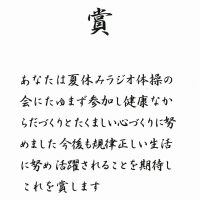 賞
あなたは夏休みラジオ体操の
会にたゆまず参加し健康なか
らだづくりとたくましい心づくりに努
めました今後も規律正しい生活
に努め活躍されることを期待し
これを賞します